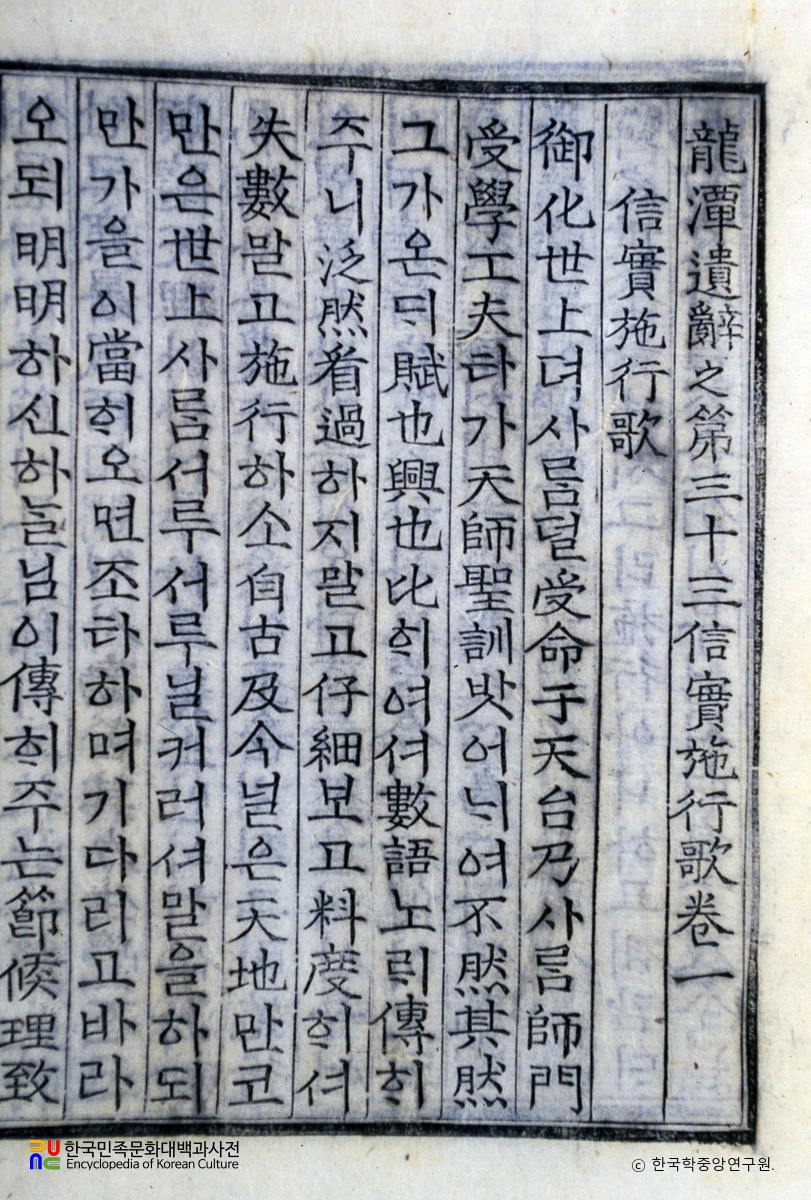 龍潭遺辭之第三十三信實施行歌卷一
信實施行歌
御化世上뎌사ᄅᆞᆷ덜受命于天台乃사ᄅᆞᆷ師門
受學工夫타가天師聖訓밧어ᄂᆡ여不然其然
그가온ᄃᆡ賦也興也比ᄒᆡ여셔數語노ᄅᆡ傳ᄒᆡ
주니泛然看過하지말고仔細보고料度ᄒᆡ셔
失數말고施行하소自古及今널은天地만코
만은世上사ᄅᆞᆷ서루서루닐커러셔말을하되
만가을이當ᄒᆡ오면조타하며기다리고바라
오되明明하신하ᄂᆞᆯ님이傳ᄒᆡ주는節候理致
한국민족문화대백과사전
Encyclopedia of Korean Culture
ⓒ 한국학중앙연구원.